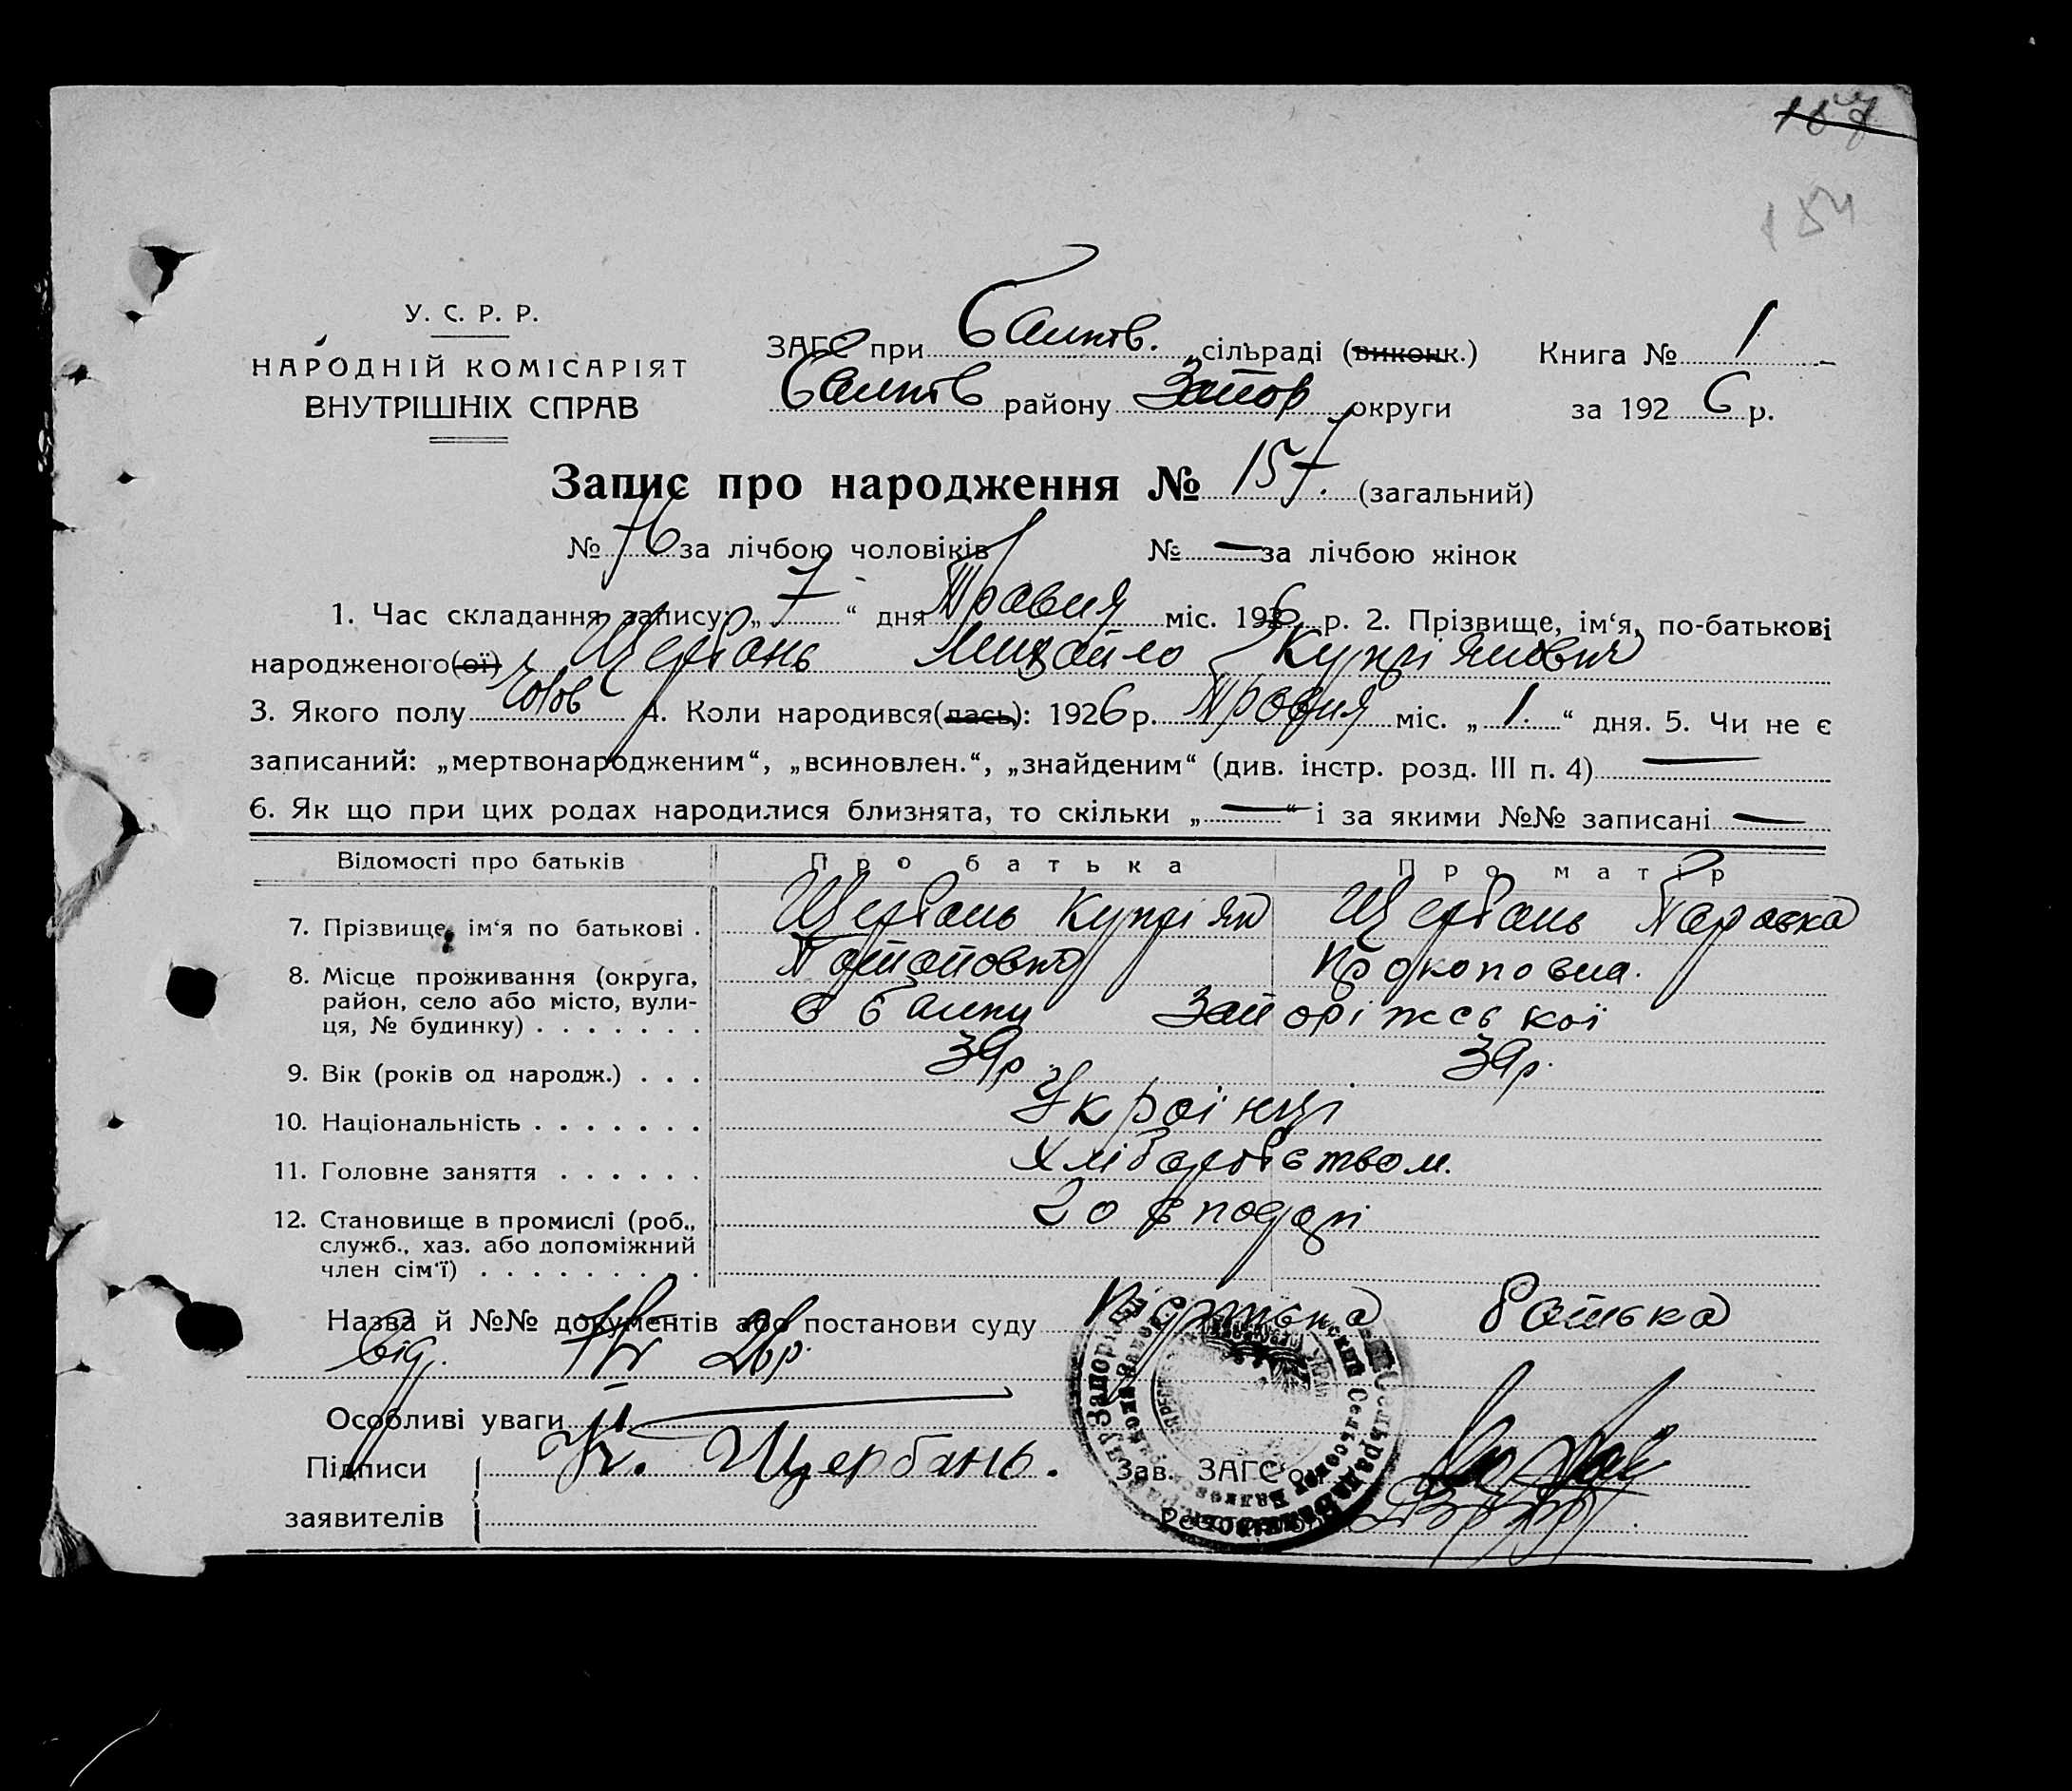 157
154
У. С. Р. Р.
НАРОДНІЙ КОМІСАРІЯТ
ВНУТРІШНІХ СПРАВ
ЗАГС при сільраді (виконк.) Книга № 1
району Запор округи за 1926 р.
Запис про народження № 157. (загальний)
№ 76 за лічбою чоловіків № — за лічбою жінок
1. Час складання запису: „ 7 “ дня Травня міс. 1926 р. 2. Прізвище, ім‘я, по-батькові
народженого(ої) Щербань Михайло Купріянович
3. Якого полу Чолов 4. Коли народився(лась): 1926 р. Травня міс. „ 1. “ дня. 5. Чи не є
записаний: „мертвонародженим“, „всиновлен.“, „знайденим“ (див. інстр. розд. III п. 4) —
6. Як що при цих родах народилися близнята, то скільки „ — “ і за якими №№ записані —
Відомості про батьків Про батька Про матір
7. Прізвище, ім‘я по батькові . Щербань Купріян Щербань Параска
Потапович Прокоповна.
8. Місце проживання (округа,
район, село або місто, вули-
ця, № будинку) . . . . . . . с Балки Запоріжської
9. Вік (років од народж.) . . . 39р 39р.
10. Національність . . . . . . . Українці
11. Головне заняття . . . . . . Хліборобством.
12. Становище в промислі (роб.,
служб., хаз. або допоміжний
член сім‘ї) . . . . . . . . . Господарі
Назва й №№ документів або постанови суду батька
від 26р.
Особливі уваги
Підписи
заявителів
К. Щербань.
Зав. ЗАГС‘ом